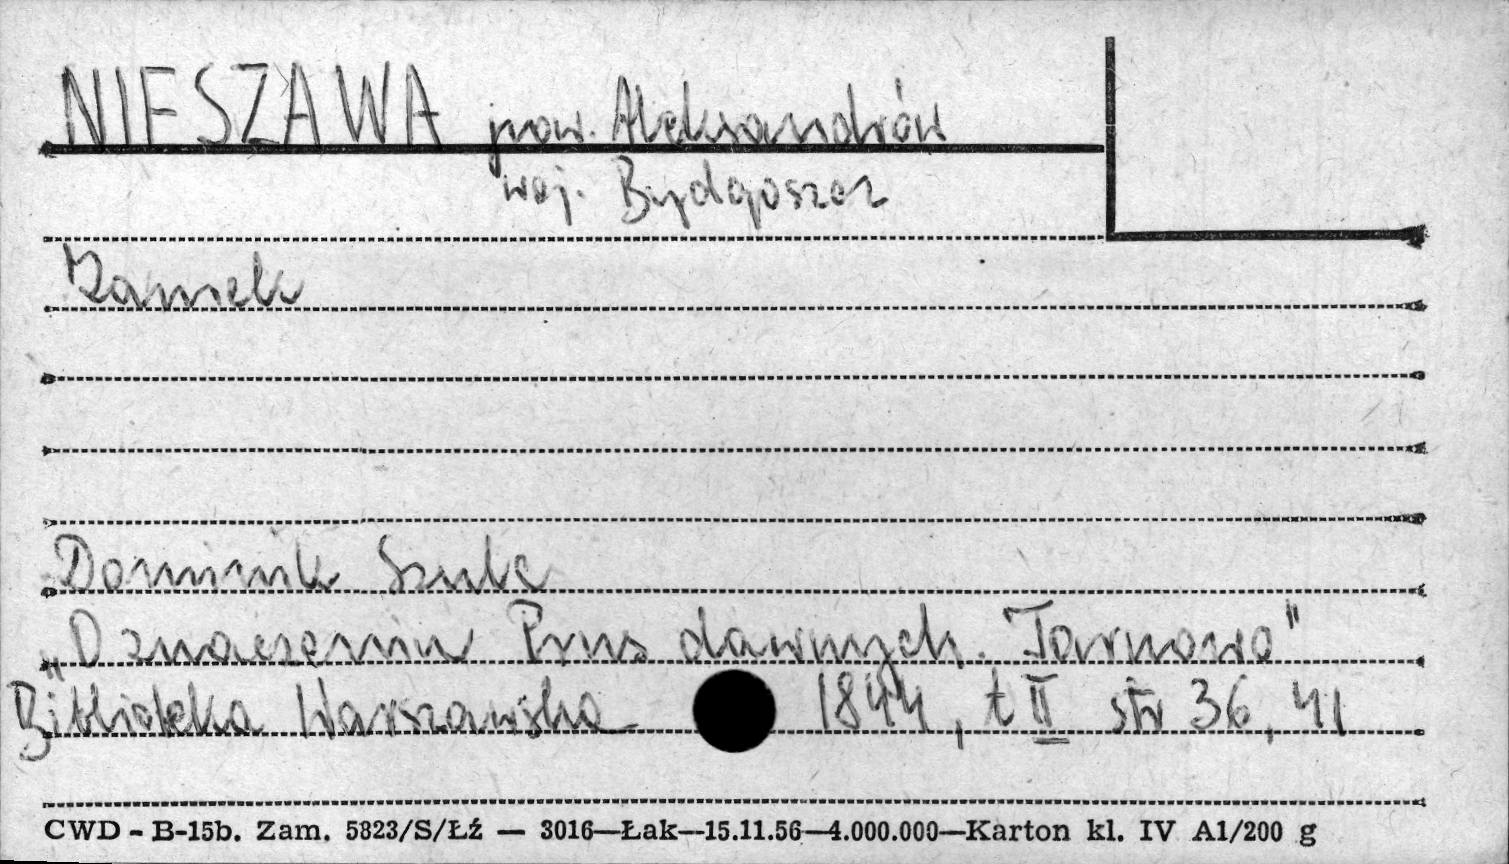 NIESZAWA pow. Aleksandrów
woj. Bydgoszcz
Zamek
Dominik Szulc
"O znaczeniu Prus dawnych. Tarnowo"
Biblioteka Warszawska 1844, t II str 36, 41
CWD - B-15b. Zam. 5823/S/Łź — 3016—Łak—15.11.56—4.000.000—Karton kl. IV A1/200 g